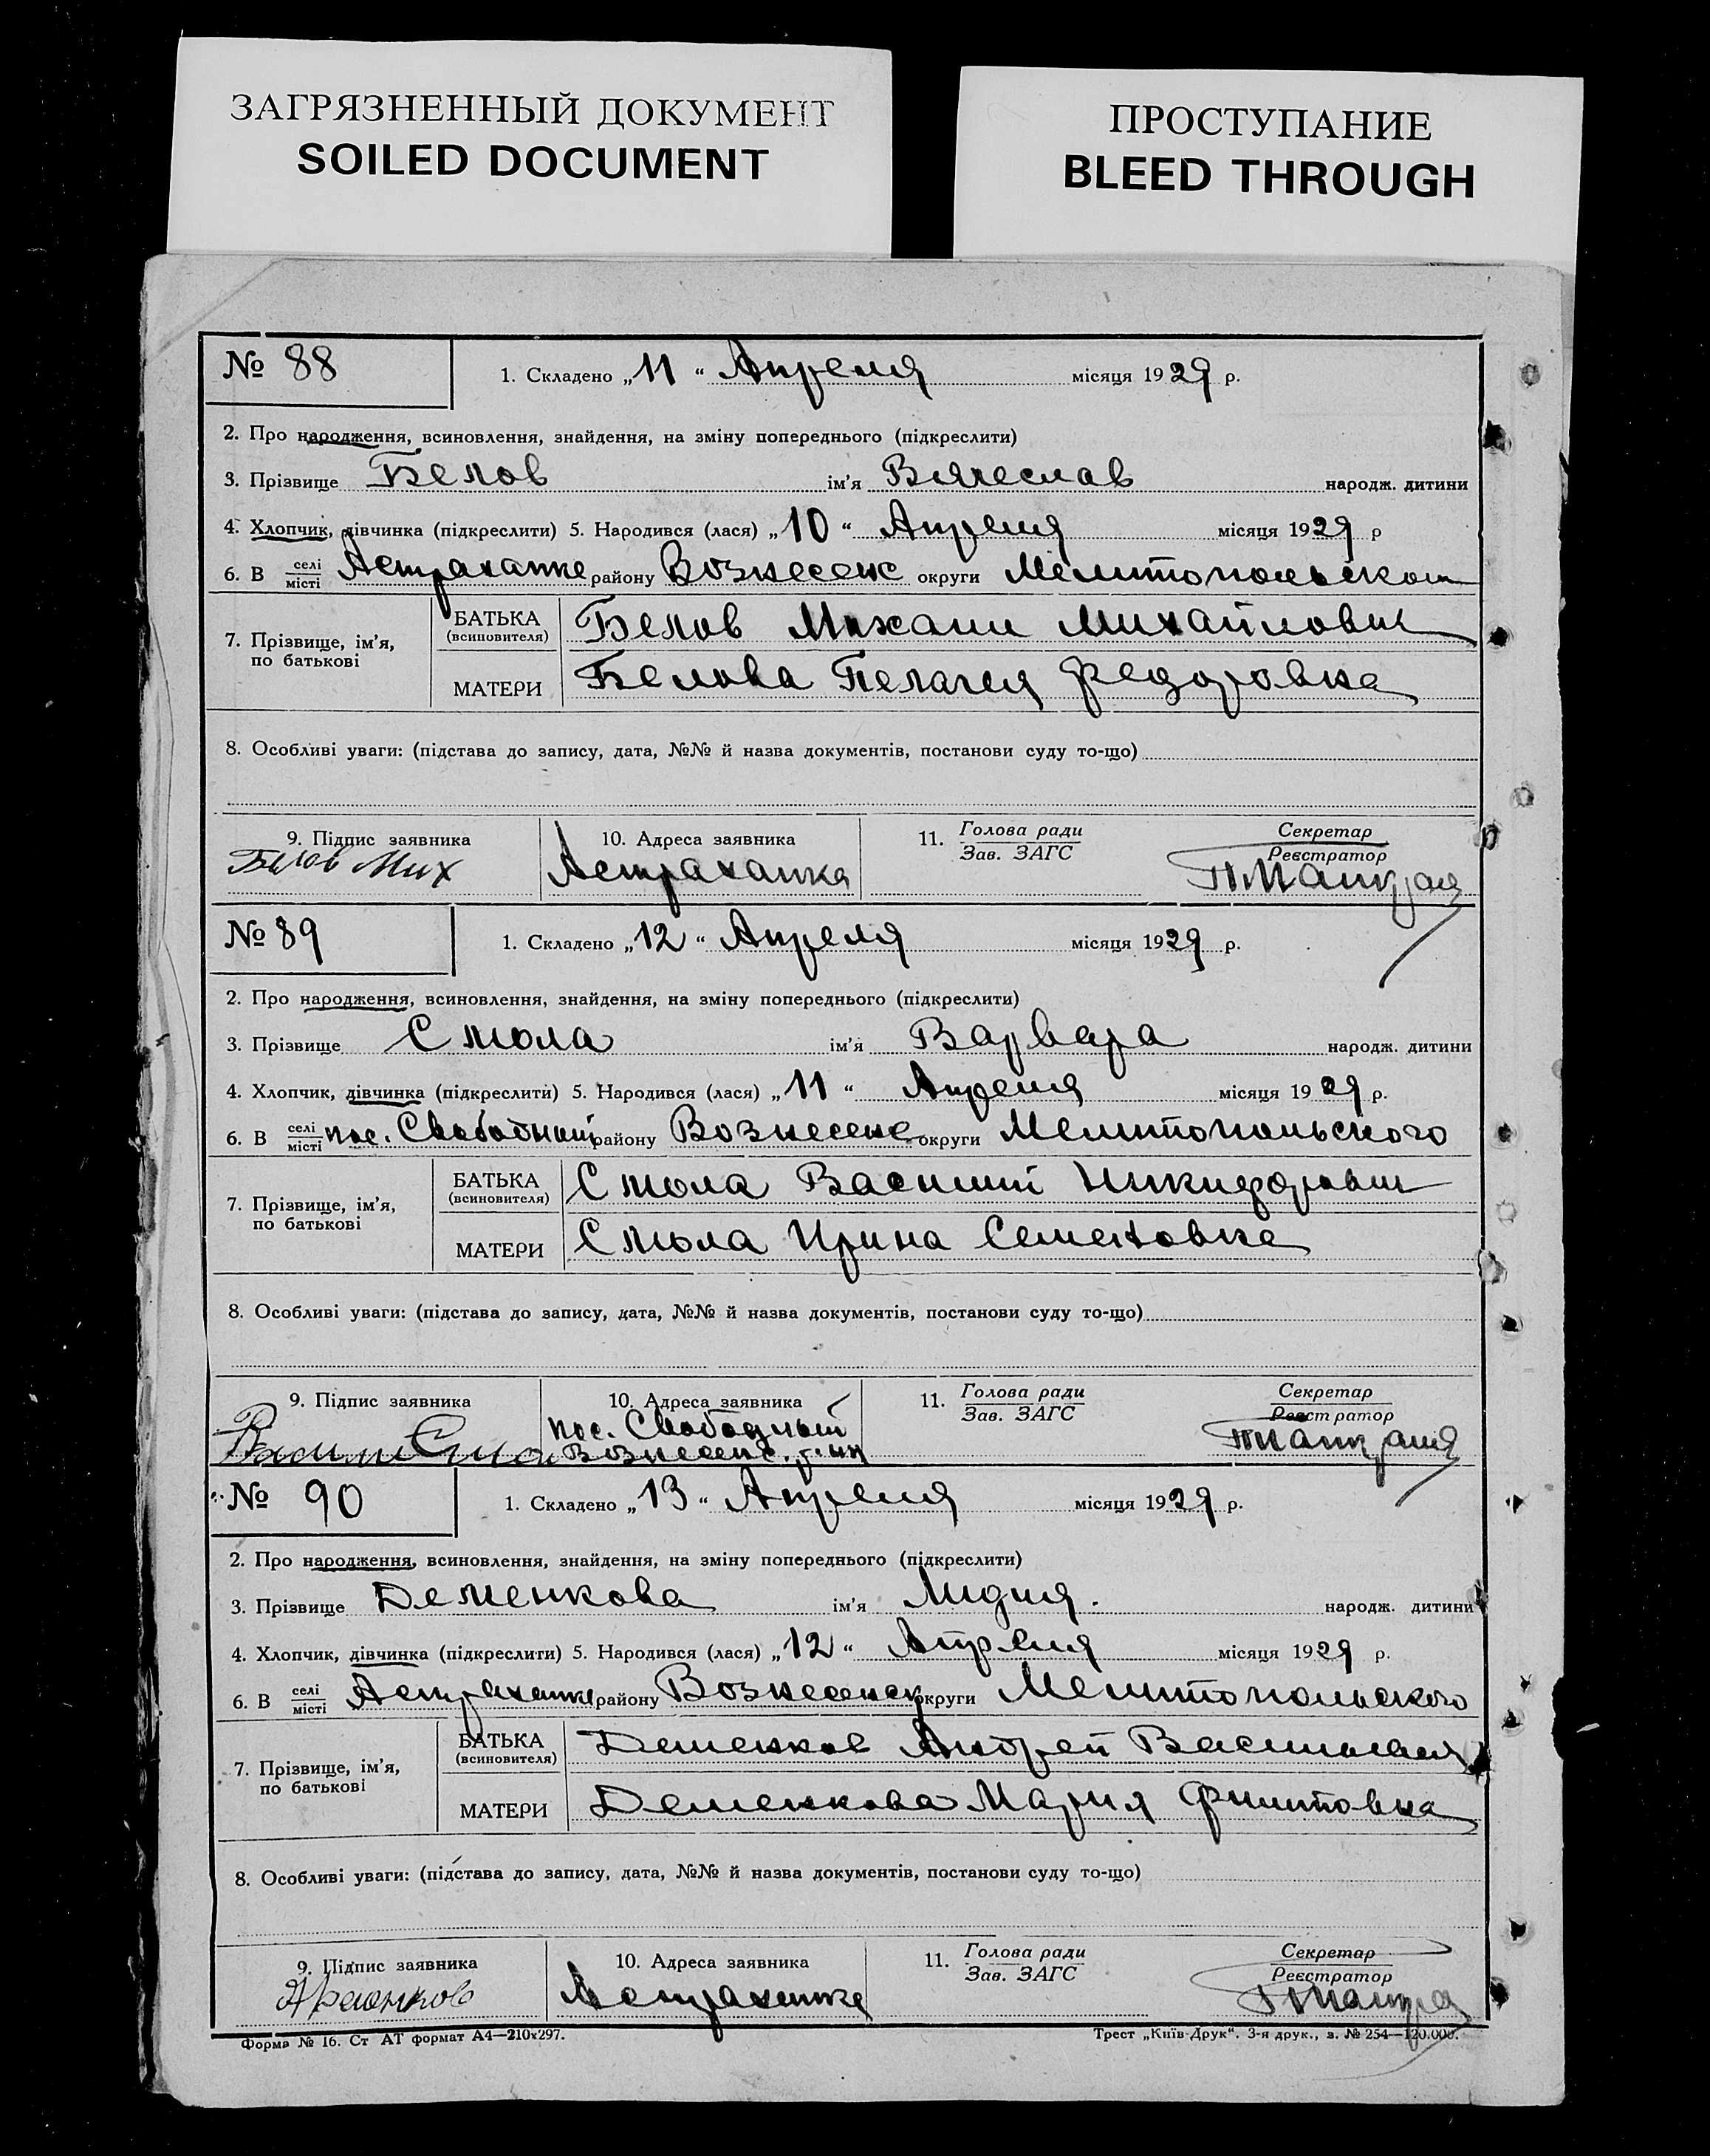 ЗАГРЯЗНЕННЫЙ ДОКУМЕНТ
SOILED DOCUMENT
ПРОСТУПАНИЕ
BLEED THROUGH
№ 88 1. Складено „11“ Апреля місяця 1929 р.
2. Про народження, всиновлення, знайдення, на зміну попереднього (підкреслити)
3. Прізвище Белов ім'я Вячеслав народж. дитини
4. Хлопчик, дівчинка (підкреслити) 5. Народився (лася) „10“ Апреля місяця 1929 р
6. В селі/місті Астраханке району Вознесенс округи Мелитопольском
7. Прізвище, ім'я, по батькові БАТЬКА (всиновителя) Белов Михаил Михайлович
МАТЕРИ Белова Пелагея Федоровна
8. Особливі уваги: (підстава до запису, дата, №№ й назва документів, постанови суду то-що)
9. Підпис заявника 10. Адреса заявника 11. Голова ради Зав. ЗАГС Секретар Реєстратор
Белов Мих Астраханка
№ 89 1. Складено „12“ Апреля місяця 1929 р.
2. Про народження, всиновлення, знайдення, на зміну попереднього (підкреслити)
3. Прізвище Смола ім'я Варвара народж. дитини
4. Хлопчик, дівчинка (підкреслити) 5. Народився (лася) „11“ Апреля місяця 1929 р.
6. В селі/місті пос. Свободный району Вознесенс округи Мелитопольского
7. Прізвище, ім'я, по батькові БАТЬКА (всиновителя) Смола Василий Никифорович
МАТЕРИ Смола Ирина Семеновна
8. Особливі уваги: (підстава до запису, дата, №№ й назва документів, постанови суду то-що)
9. Підпис заявника 10. Адреса заявника 11. Голова ради Зав. ЗАГС Секретар Реєстратор
пос. Свободный
Вознесенс.
№ 90 1. Складено „13“ Апреля місяця 1929 р.
2. Про народження, всиновлення, знайдення, на зміну попереднього (підкреслити)
3. Прізвище Деменкова ім'я Лидия. народж. дитини
4. Хлопчик, дівчинка (підкреслити) 5. Народився (лася) „12“ Апреля місяця 1929 р.
6. В селі/місті Астраханке району Вознесенск округи Мелитопольского
7. Прізвище, ім'я, по батькові БАТЬКА (всиновителя) Деменков Андрей Васильевич
МАТЕРИ Деменкова Мария Филиповна
8. Особливі уваги: (підстава до запису, дата, №№ й назва документів, постанови суду то-що)
9. Підпис заявника 10. Адреса заявника 11. Голова ради Зав. ЗАГС Секретар Реєстратор
Астраханке
Форма № 16. Ст АТ формат А4—210х297. Трест „Київ-Друк“. 3-я друк., з. № 254—120.000.